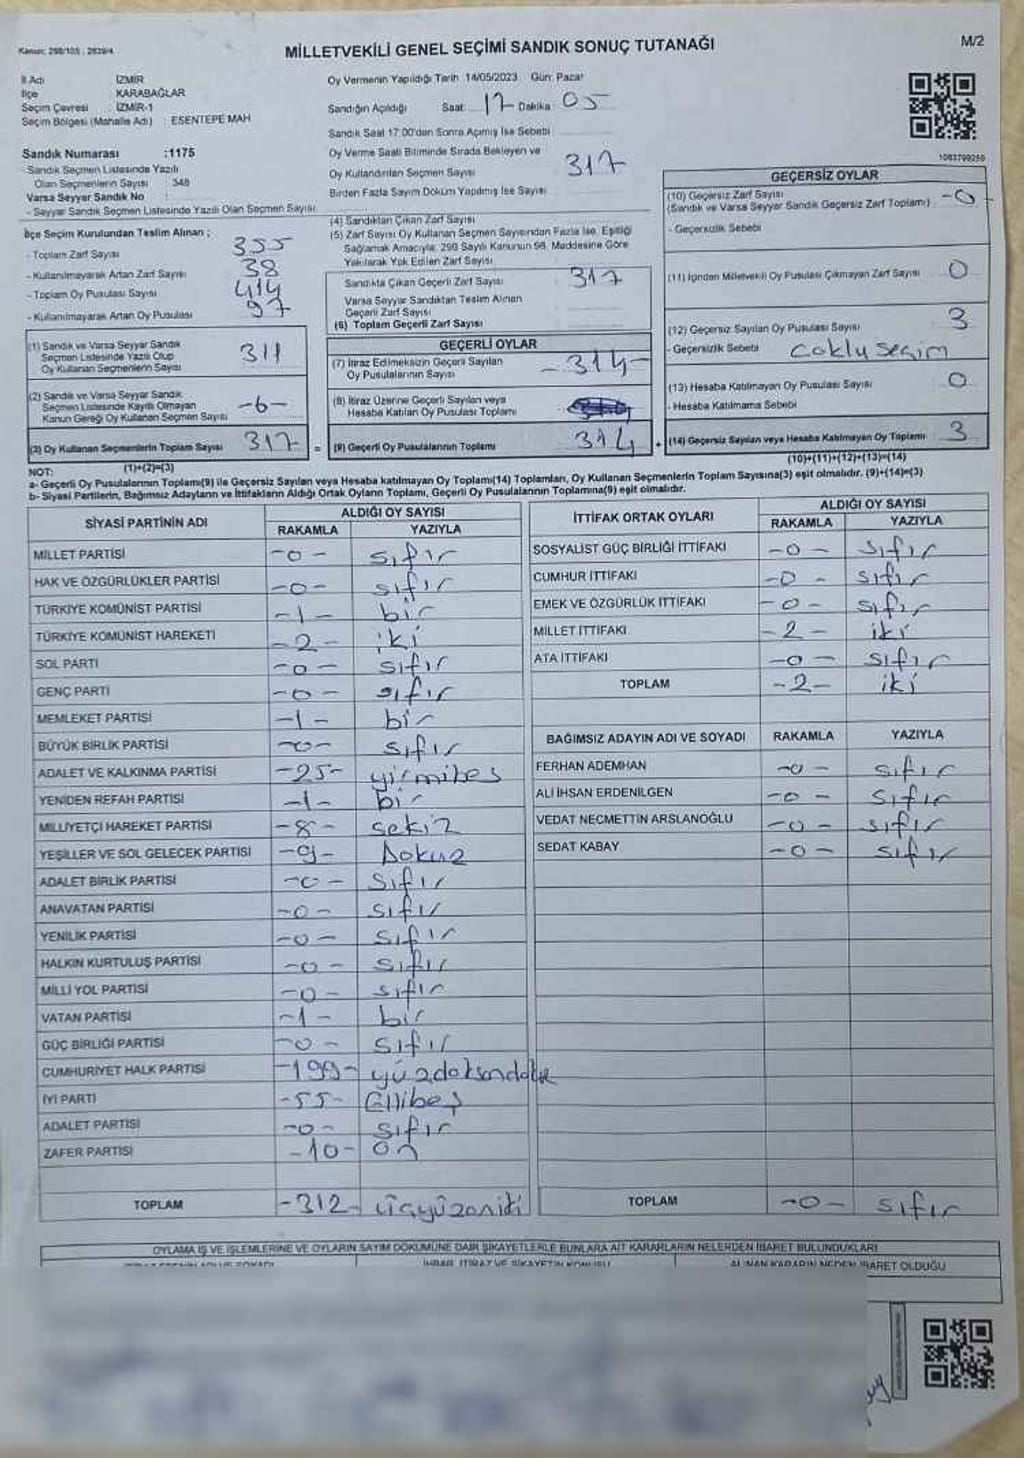 Kanun: 298/105 ; 2839/4
MİLLETVEKİLİ GENEL SEÇİMİ SANDIK SONUÇ TUTANAĞI
M/2
İl Adı İZMİR
İlçe KARABAĞLAR
Seçim Çevresi İZMİR-1
Seçim Bölgesi (Mahalle Adı) : ESENTEPE MAH
Sandık Numarası :1175
- Sandık Seçmen Listesinde Yazılı
Olan Seçmenlerin Sayısı : 348
Varsa Seyyar Sandık No
- Seyyar Sandık Seçmen Listesinde Yazılı Olan Seçmen Sayısı:
İlçe Seçim Kurulundan Teslim Alınan ;
- Toplam Zarf Sayısı 355
- Kullanılmayarak Artan Zarf Sayısı 38
- Toplam Oy Pusulası Sayısı 414
- Kullanılmayarak Artan Oy Pusulası 97
(1) Sandık ve Varsa Seyyar Sandık
Seçmen Listesinde Yazılı Olup
Oy Kullanan Seçmenlerin Sayısı 311
(2) Sandık ve Varsa Seyyar Sandık
Seçmen Listesinde Kayıtlı Olmayan
Kanun Gereği Oy Kullanan Seçmen Sayısı -6-
(3) Oy Kullanan Seçmenlerin Toplam Sayısı 317 =
(1)+(2)=(3)
Oy Vermenin Yapıldığı Tarih 14/05/2023 Gün: Pazar
Sandığın Açıldığı Saat: 17 Dakika: 05
Sandık Saat 17:00'dan Sonra Açılmış İse Sebebi
Oy Verme Saati Bitiminde Sırada Bekleyen ve
Oy Kullandırılan Seçmen Sayısı 317
Birden Fazla Sayım Döküm Yapılmış İse Sayısı
(4) Sandıktan Çıkan Zarf Sayısı
(5) Zarf Sayısı Oy Kullanan Seçmen Sayısından Fazla İse, Eşitliği
Sağlamak Amacıyla, 298 Sayılı Kanunun 98. Maddesine Göre
Yakılarak Yok Edilen Zarf Sayısı
Sandıkta Çıkan Geçerli Zarf Sayısı 317
Varsa Seyyar Sandıktan Teslim Alınan
Geçerli Zarf Sayısı
(6) Toplam Geçerli Zarf Sayısı
GEÇERLİ OYLAR
(7) İtiraz Edilmeksizin Geçerli Sayılan
Oy Pusulalarının Sayısı -314-
(8) İtiraz Üzerine Geçerli Sayılan veya
Hesaba Katılan Oy Pusulası Toplamı
(9) Geçerli Oy Pusulalarının Toplamı 314 +
1083799259
GEÇERSİZ OYLAR
(10) Geçersiz Zarf Sayısı
(Sandık ve Varsa Seyyar Sandık Geçersiz Zarf Toplamı) -0-
- Geçersizlik Sebebi
(11) İçinden Milletvekili Oy Pusulası Çıkmayan Zarf Sayısı 0
(12) Geçersiz Sayılan Oy Pusulası Sayısı 3
- Geçersizlik Sebebi Çoklu seçim
(13) Hesaba Katılmayan Oy Pusulası Sayısı 0
- Hesaba Katılmama Sebebi
(14) Geçersiz Sayılan veya Hesaba Katılmayan Oy Toplamı 3
(10)+(11)+(12)+(13)=(14)
NOT:
a- Geçerli Oy Pusulalarının Toplamı(9) ile Geçersiz Sayılan veya Hesaba katılmayan Oy Toplamı(14) Toplamları, Oy Kullanan Seçmenlerin Toplam Sayısına(3) eşit olmalıdır. (9)+(14)=(3)
b- Siyasi Partilerin, Bağımsız Adayların ve İttifakların Aldığı Ortak Oyların Toplamı, Geçerli Oy Pusulalarının Toplamına(9) eşit olmalıdır.
SİYASİ PARTİNİN ADI ALDIĞI OY SAYISI
RAKAMLA YAZIYLA
MİLLET PARTİSİ -0- sıfır
HAK VE ÖZGÜRLÜKLER PARTİSİ -0- sıfır
TÜRKİYE KOMÜNİST PARTİSİ -1- bir
TÜRKİYE KOMÜNİST HAREKETİ -2- iki
SOL PARTİ -0- sıfır
GENÇ PARTİ -0- sıfır
MEMLEKET PARTİSİ -1- bir
BÜYÜK BİRLİK PARTİSİ -0- sıfır
ADALET VE KALKINMA PARTİSİ -25- yirmibeş
YENİDEN REFAH PARTİSİ -1- bir
MİLLİYETÇİ HAREKET PARTİSİ -8- sekiz
YEŞİLLER VE SOL GELECEK PARTİSİ -9- Dokuz
ADALET BİRLİK PARTİSİ -0- sıfır
ANAVATAN PARTİSİ -0- sıfır
YENİLİK PARTİSİ -0- sıfır
HALKIN KURTULUŞ PARTİSİ -0- sıfır
MİLLİ YOL PARTİSİ -0- sıfır
VATAN PARTİSİ -1- bir
GÜÇ BİRLİĞİ PARTİSİ -0- sıfır
CUMHURİYET HALK PARTİSİ -199- yüzdoksandokuz
İYİ PARTİ -55- Ellibeş
ADALET PARTİSİ -0- sıfır
ZAFER PARTİSİ -10- on
TOPLAM -312- üçyüzoniki
İTTİFAK ORTAK OYLARI ALDIĞI OY SAYISI
RAKAMLA YAZIYLA
SOSYALİST GÜÇ BİRLİĞİ İTTİFAKI -0- sıfır
CUMHUR İTTİFAKI -0- sıfır
EMEK VE ÖZGÜRLÜK İTTİFAKI -0- sıfır
MİLLET İTTİFAKI -2- iki
ATA İTTİFAKI -0- sıfır
TOPLAM -2- iki
BAĞIMSIZ ADAYIN ADI VE SOYADI RAKAMLA YAZIYLA
FERHAN ADEMHAN -0- sıfır
ALİ İHSAN ERDENİLGEN -0- sıfır
VEDAT NECMETTİN ARSLANOĞLU -0- sıfır
SEDAT KABAY -0- sıfır
TOPLAM -0- sıfır
OYLAMA İŞ VE İŞLEMLERİNE VE OYLARIN SAYIM DÖKÜMÜNE DAİR ŞİKAYETLERLE BUNLARA AİT KARARLARIN NELERDEN İBARET BULUNDUKLARI
İHBAR, İTİRAZ VE ŞİKAYETİN KONUSU ALINAN KARARIN NEDEN İBARET OLDUĞU